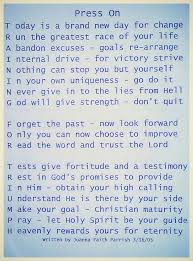 Press On
Today is a brand new day for change
Run the greatest race of your life
Abandon excuses - goals re-arrange
Internal drive - for victory strive
Nothing can stop you but yourself
In your own uniqueness - go do it
Never give in to the lies from Hell
God will give strength - don't quit
Forget the past - now look forward
Only you can now choose to improve
Read the word and trust the Lord
Tests give fortitude and a testimony
Rest in God's promises to provide
In Him - obtain your high calling
Understand He is there by your side
Make your goal - Christian maturity
Pray - let Holy Spirit be your guide
Heavenly rewards yours for eternity
Written by Joanna Faith Parrish 3/18/05